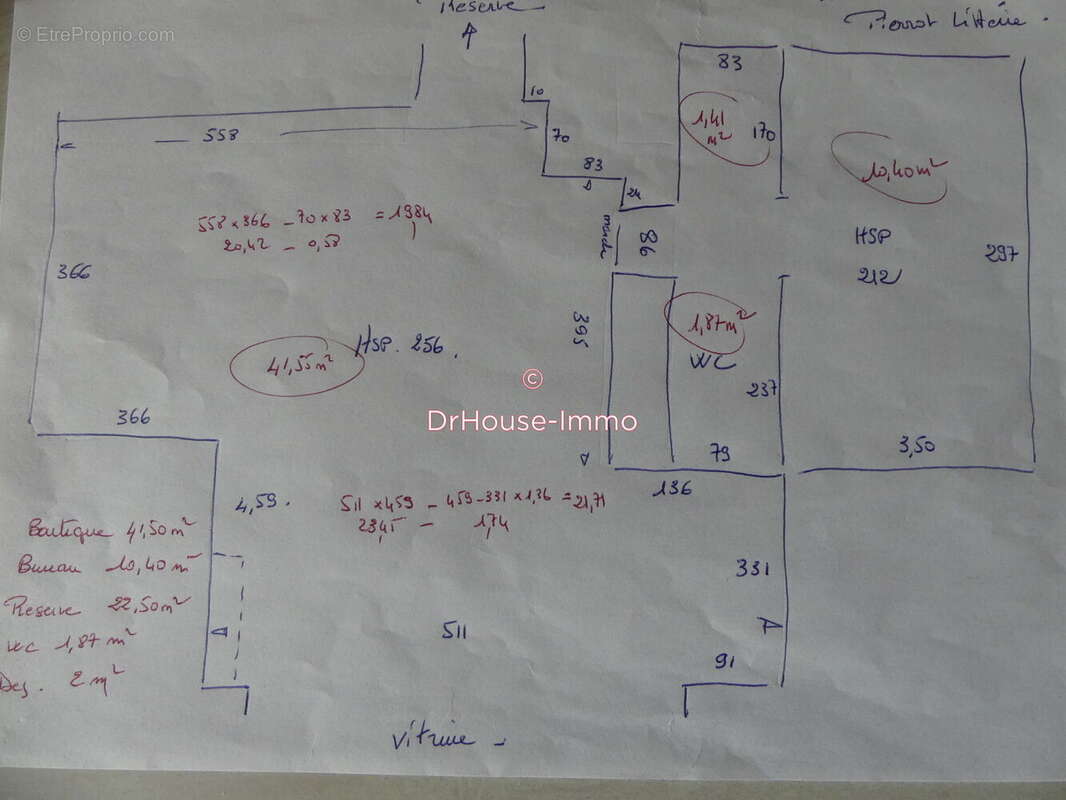 © EtreProprio.com
Reserve
83
10
558
70
1,41
m²
170
10,40m²
83
24
558 x 366 - 70 x 83 = 1984
20,42 - 0,58
86
HSP
212
297
366
395
1,87m²
WC
HSP. 256.
41,55m²
©
DrHouse-Immo
237
366
79
3,50
136
4,59.
511 x 459 - 459-331 x 1,36 = 21,71
23,45 - 1,74
Boutique 41,50m²
Bureau 10,40 m²
Reserve 22,50m²
wc 1,87 m²
Deg. 2 m²
331
511
91
Vitrine -